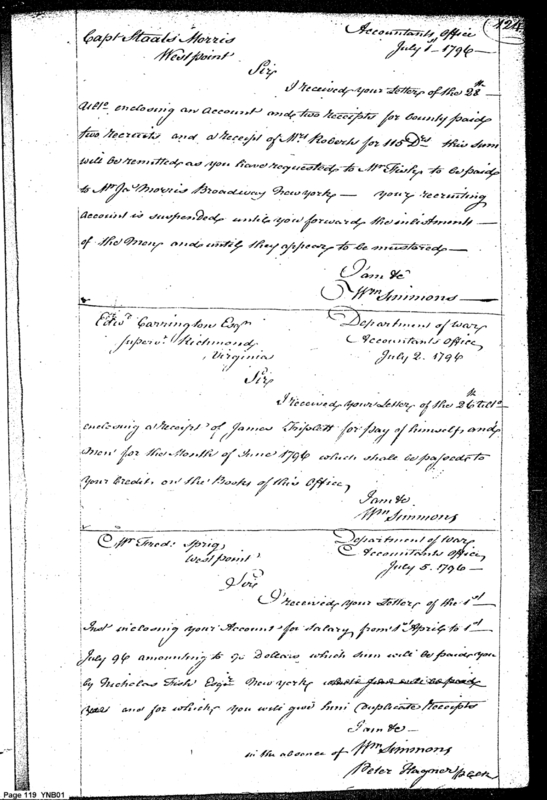 124
Capt Staats Morris
West point
Accountants Office
July 1st 1796
Sir
I received your Letter of the 28th
Ulto. enclosing an Account and two receipts for bounty paid
two recruits and a receipt of Mrs Roberts for 115 Drs this sum
will be remitted as you have requested to Mr Fish to be paid
to Mr Jas Morris Broadway New York — your recruiting
account is suspended until you forward the inlistments
of the Men, and until they appear to be mustered —
I am &c
Wm Simmons
Edwd. Carrington Esqr
Superv. Richmond
Virginia
Department of War
Accountants Office
July 2. 1796
Sir
I received your Letter of the 26th Ulto
enclosing a receipt of James Triplett for pay of himself and
men for the Month of June 1796 which shall be passed to
your Credit on the Books of this Office,
I am &c
Wm Simmons
Mr Fred: Sprig
West point
Department of War
Accountants Office,
July 5. 1796
Sir
I received your Letter of the 1st
Inst inclosing your Account for salary from 1st April to 1st
July 96 amounting to Dollars which sum will be paid you
by Nicholas Fish Esqr New York
and for which you will give him duplicate Receipts
I am &c
in the absence of Wm Simmons
Peter Hagner
Page 119 YNB01